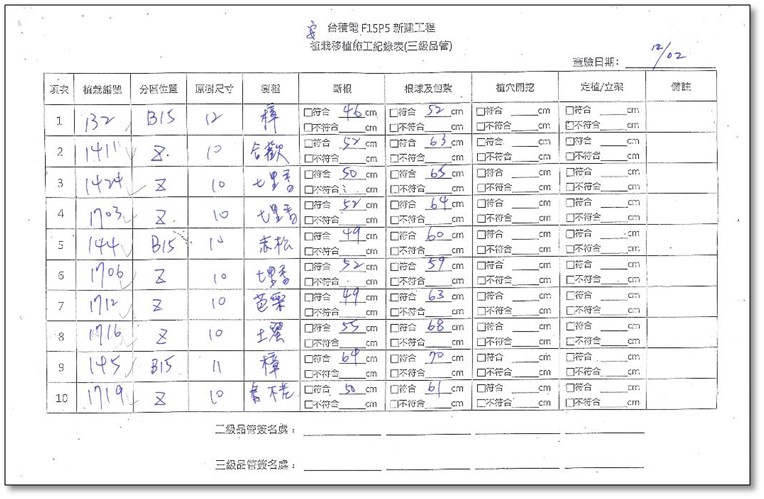 台積電 F15P5 新建工程
植栽移植施工紀錄表(三級品管)
查驗日期: 12/02
項次 植栽編號 分區位置 原樹尺寸 樹種 斷根 根球及包紮 植穴開挖 定植/立架 備註
1 132 B15 12 樟 □符合 46 cm □符合 52 cm □符合 cm □符合 cm
□不符合 cm □不符合 cm □不符合 cm □不符合 cm
2 1411 Z 10 合歡 □符合 52 cm □符合 63 cm □符合 cm □符合 cm
□不符合 cm □不符合 cm □不符合 cm □不符合 cm
3 1424 Z 10 七里香 □符合 50 cm □符合 65 cm □符合 cm □符合 cm
□不符合 cm □不符合 cm □不符合 cm □不符合 cm
4 1703 Z 10 七里香 □符合 52 cm □符合 64 cm □符合 cm □符合 cm
□不符合 cm □不符合 cm □不符合 cm □不符合 cm
5 144 B15 10 赤松 □符合 49 cm □符合 60 cm □符合 cm □符合 cm
□不符合 cm □不符合 cm □不符合 cm □不符合 cm
6 1706 Z 10 七里香 □符合 52 cm □符合 59 cm □符合 cm □符合 cm
□不符合 cm □不符合 cm □不符合 cm □不符合 cm
7 1712 Z 10 芭樂 □符合 49 cm □符合 63 cm □符合 cm □符合 cm
□不符合 cm □不符合 cm □不符合 cm □不符合 cm
8 1716 Z 10 土蜜 □符合 55 cm □符合 68 cm □符合 cm □符合 cm
□不符合 cm □不符合 cm □不符合 cm □不符合 cm
9 145 B15 11 樟 □符合 64 cm □符合 70 cm □符合 cm □符合 cm
□不符合 cm □不符合 cm □不符合 cm □不符合 cm
10 1719 Z 10 □符合 50 cm □符合 61 cm □符合 cm □符合 cm
□不符合 cm □不符合 cm □不符合 cm □不符合 cm
二級品管簽名處:
三級品管簽名處: